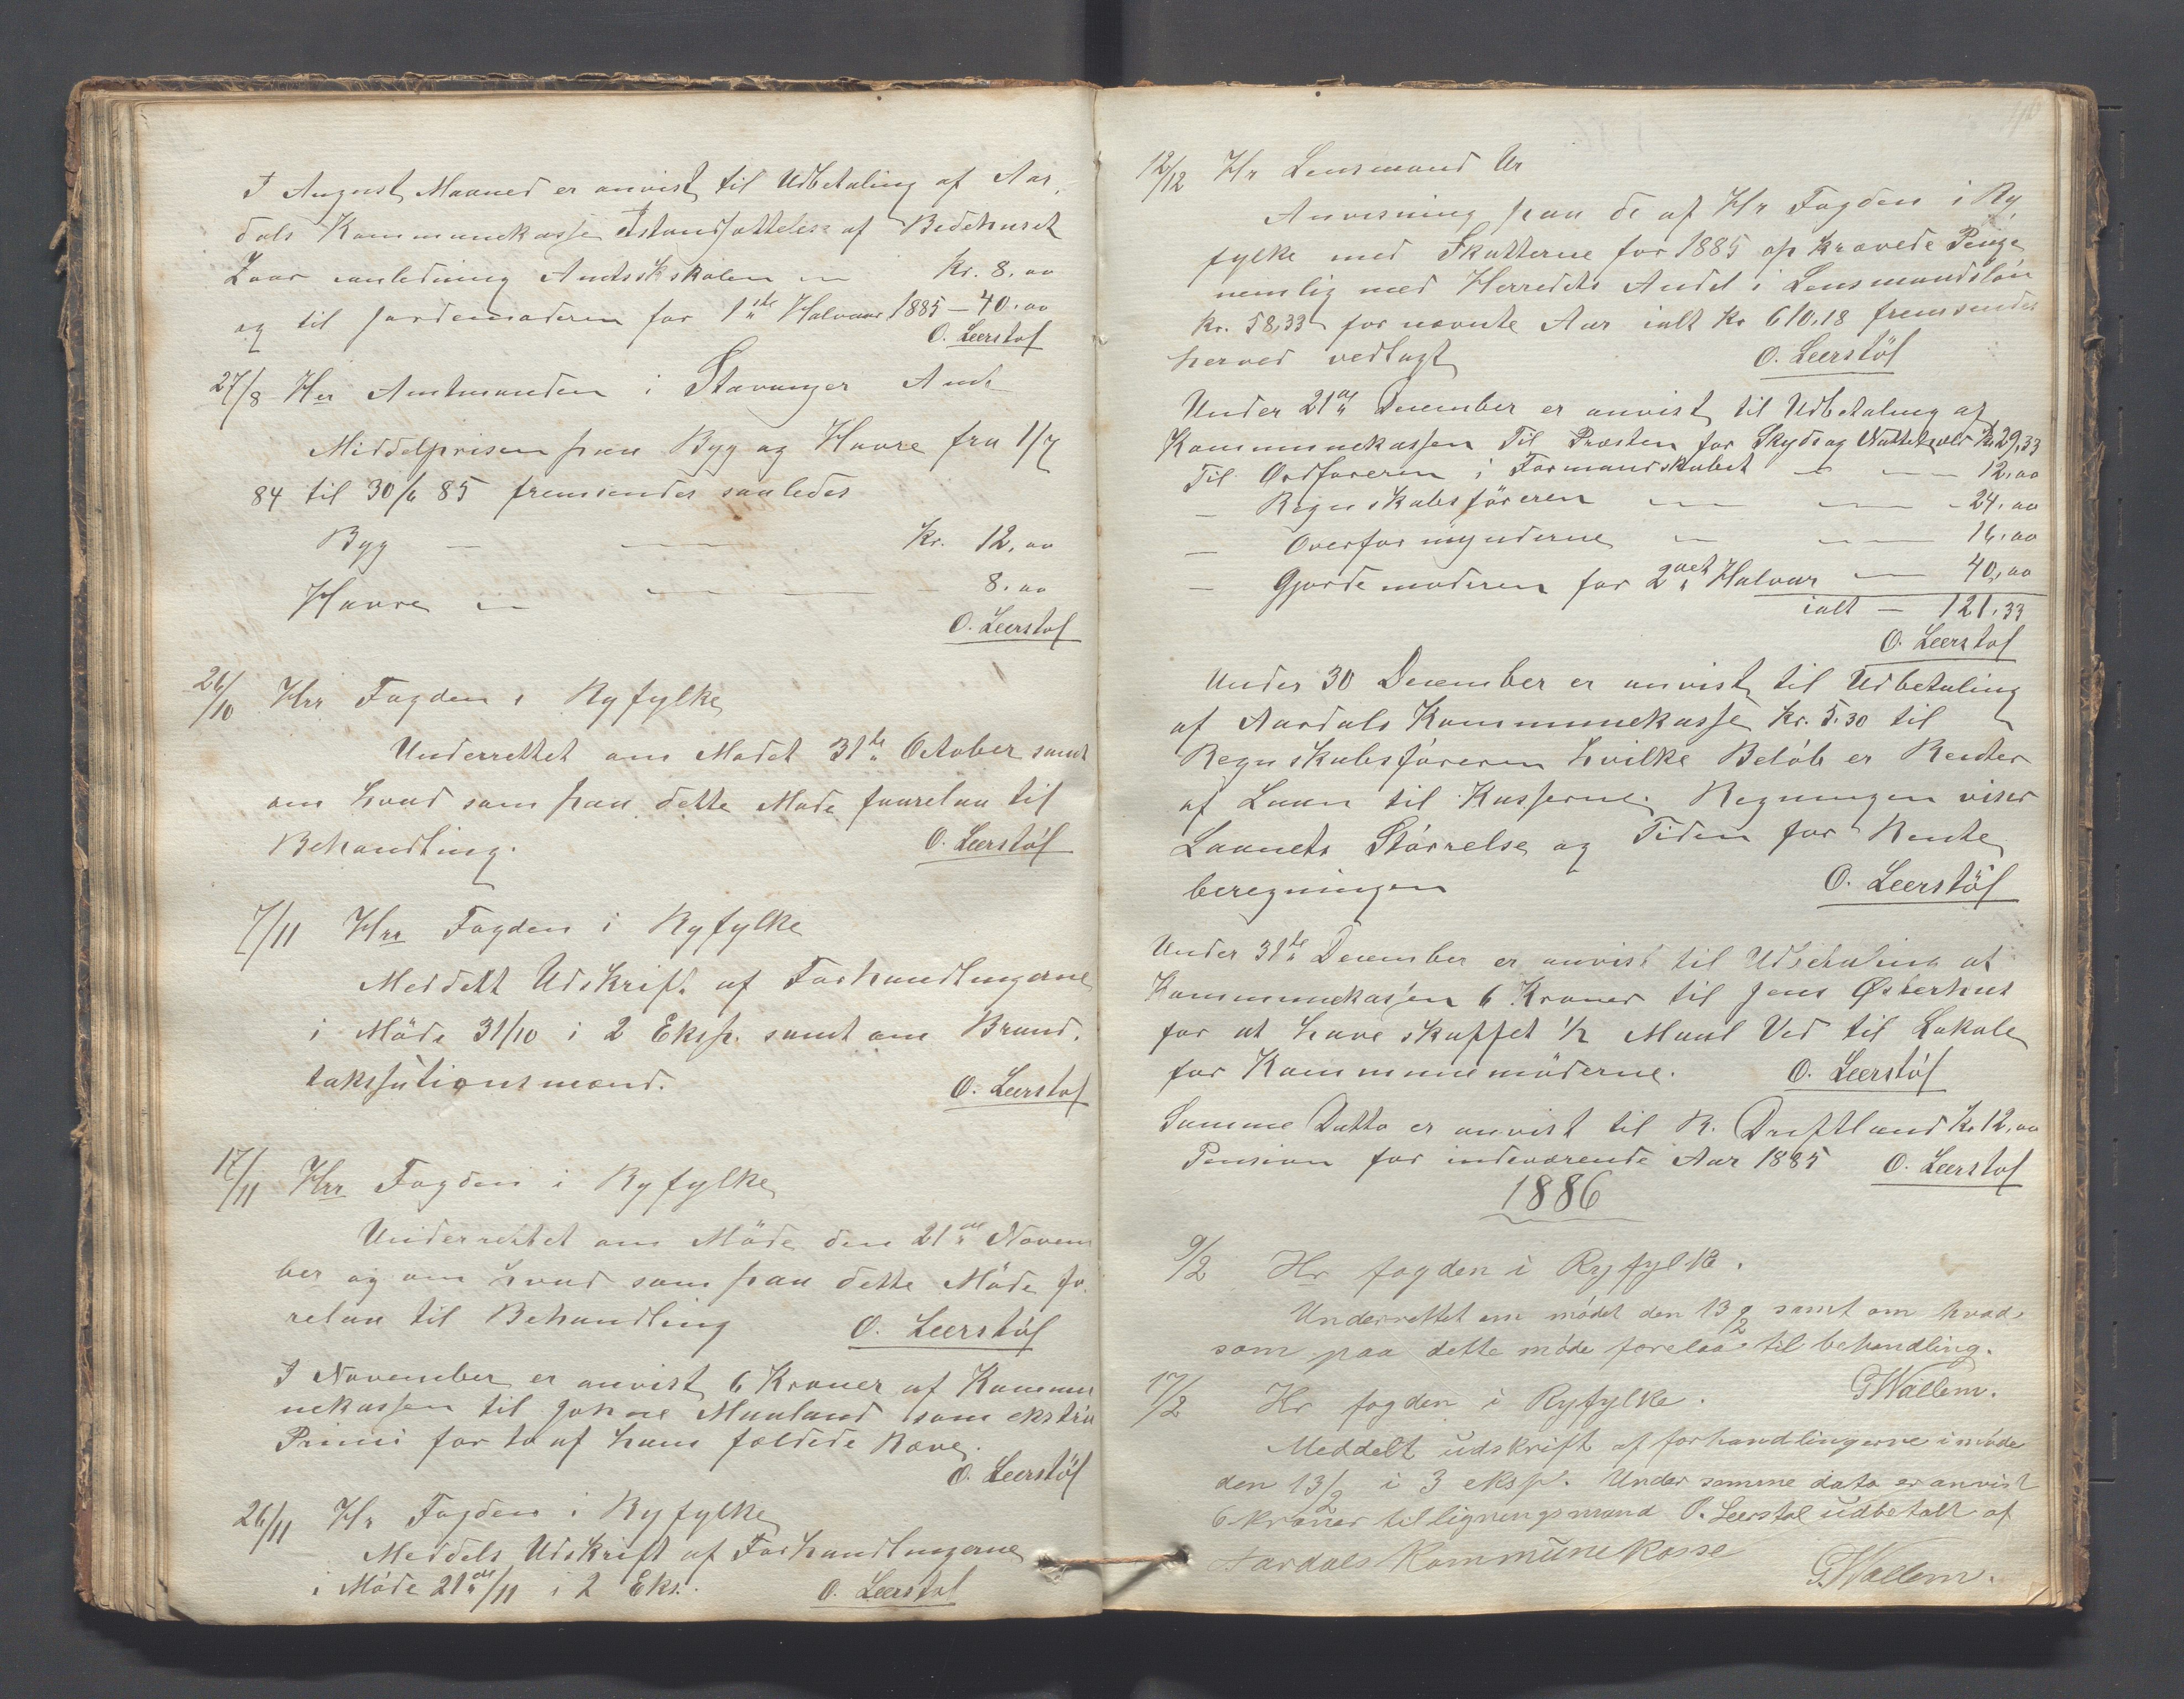 I August Maaned er anvist til Udbetaling af Aar-
dals Kommunekasse Istandsættelse af Bedehuset
Laar anledning Amtsskskolen — Kr. 8,00
og til Jordemoderen for 1ste Halvaar 1885 — 40.00
O. Leerstøl
27/8 Her Amtmanden i Stavanger Amt
Middelprisen paa Byg og Havre fra 1/7
84 til 30/6 85 fremsendes saaledes
Byg — — Kr. 12,00
Havre — — — 8.00
O. Leerstøl
26/10 Hrr Fogden i Ryfylke
Underrettet om Mødet 31te October samt
om hvad som paa dette Møde foorelaa til
Behandling. O. Leerstøl
7/11 Hrr Fogden i Ryfylke
Meddelt Udskrift af Forhandlingerne
i Møde 31/10 i 2 Eksp. samt om Brand-
takssationsmænd. O. Leerstøl
17/11 Hrr Fogden i Ryfylke
Underrettet om Møde den 21de Novem
ber og om hvad som paa dette Møde fo-
relaa til Behandling O. Leerstøl
I November er anvist 6 Kroner af Kommu
nekassen til Johne Maaland som ekstra
Primi for to af hans fældede Ræve.
O. Leerstøl
26/11 Hr Fogden i Ryfylke
Meddels Udskrift af Forhandlingerne
i Møde 21de/11 i 2 Eks. O. Leerstøl
12/12 Hr Lensmand Ur
Anvisning paa de af Hr Fogden i Ry
fylke med Skatterne for 1885 op krævede Penge
nemlig med Herredets Andel i Lensmandsløn
Kr. 58,33 for nævnte Aar ialt Kr 610.18 fremsendes
herved vedlagt O. Leerstøl
Under 21de December er anvist til Udbetaling af
Kommunekassen Til Præsten for Skyds og Nattehold Kr 29,33
Til Ordføreren i Formandskabet — — 12,00
— Regnskabsføreren — — 24,00
— Overformynderne — — 16,00
— Gjordemoderen for 2det Halvaar — 40,00
ialt — 121,33
O. Leerstøl
Under 30 December er anvist til Udbetaling
af Aardals Kommunekasse Kr. 5.30 til
Regnskabsføreren hvilke Beløb er Renter
af Laan til Kasserne. Regningen viser
Laanets Størrelse og Tiden for Rente
beregningen O. Leerstøl
Under 31te December er anvist til Udbetaling af
Kommunekassen 6 Kroner til Jens Østerhus
for at have skaffet 1/2 Maal Ved til Lokale
for Kommunemøderne. O. Leerstøl
Samme Datto er anvist til R. Deiftland Kr 12,00
Pension for indeværende Aar 1885 O. Leerstøl
1886
9/2 Hr fogden i Ryfylke.
Underrettet om mødet den 13/2 samt om hvad
som paa dette møde forelaa til behandling.
GWallem.
17/2 Hr fogden i Ryfylke.
Meddelt udskrift af forhandlingerne i møde
den 13/2 i 3 eksp. Under samme dato er anvist
6 kroner til ligningsmand O. Leerstøl udbetalt af
Aardals Kommunekasse
GWallem.